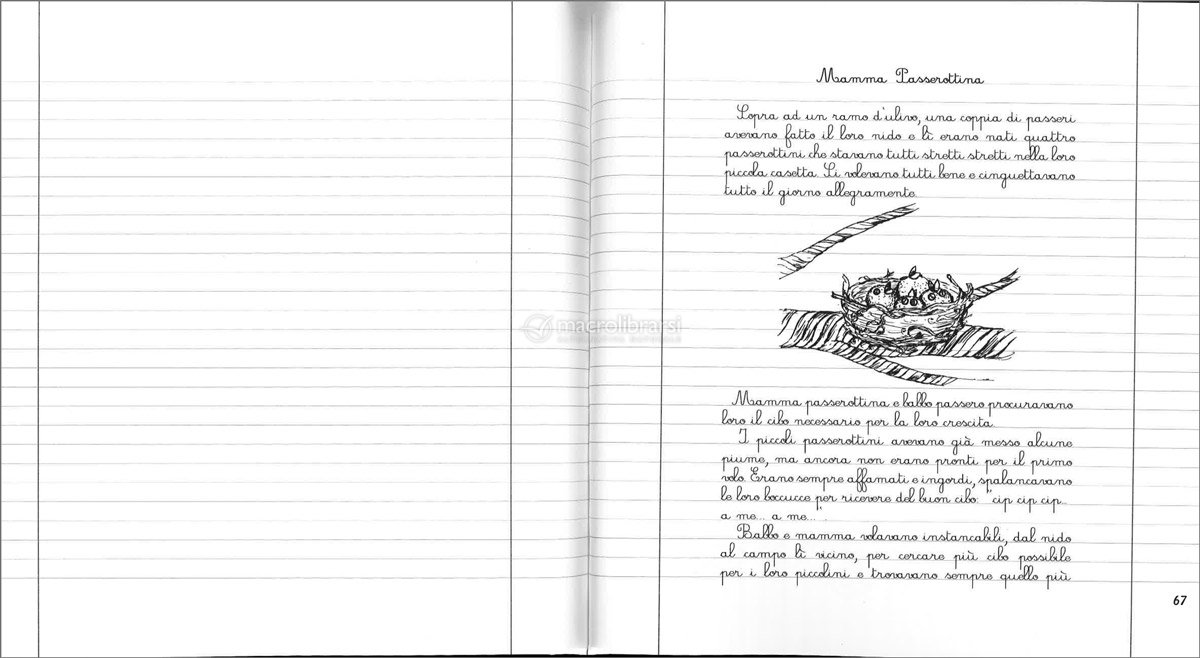 Mamma Passerottina
Sopra ad un ramo d'ulivo, una coppia di passeri
avevano fatto il loro nido e lì erano nati quattro
passerottini che stavano tutti stretti stretti nella loro
piccola casetta. Si volevano tutti bene e cinguettavano
tutto il giorno allegramente.
macrolibrarsi
Mamma passerottina e babbo passero procuravano
loro il cibo necessario per la loro crescita.
I piccoli passerottini avevano già messo alcune
piume, ma ancora non erano pronti per il primo
volo. Erano sempre affamati e ingordi, spalancavano
le loro boccucce per ricevere del buon cibo: "cip cip cip...
a me... a me..."
Babbo e mamma volavano instancabili, dal nido
al campo lì vicino, per cercare più cibo possibile
per i loro piccolini e trovavano sempre quello più
67